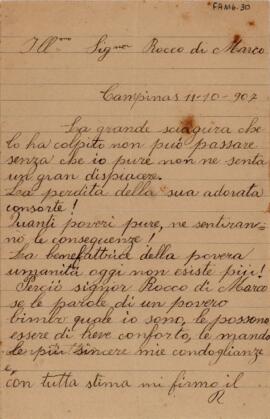 FAM6.30
Ill.mo Sig.nor Rocco di Marco
Campinas 11-10-907
La grande sciagura che
lo ha colpito non può passare
senza che io pure non ne senta
un gran dispiacere.
La perdita della sua adorata
consorte!
Quanti poveri pure, ne sentiran-
no, le conseguenze!
La benefattrice della povera
umanità oggi non esiste più!
Perciò signor Rocco di Marco
se le parole di un povero
bimbo quale io sono, le possono
essere di lieve conforto, le mando
le più sincere mie condoglianze
e,
con tutta stima mi firmo il